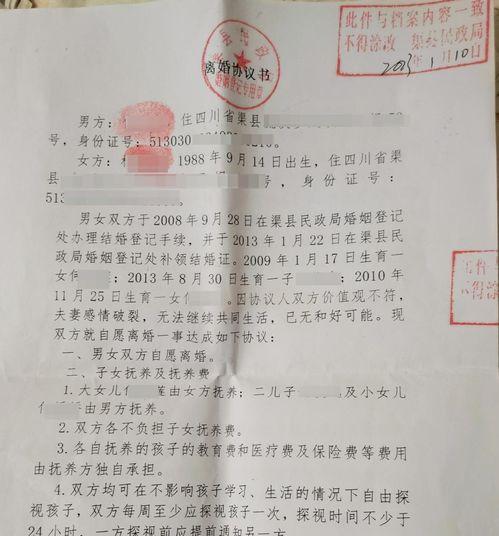 此件与档案内容一致
不得涂改 渠县民政局
2023年1月10日
离婚协议书
婚姻登记专用章
男方: 住四川省渠县
号,身份证号:513030
女方: 1988年9月14日出生,住四川省渠
县 号,身份证号:
513
男女双方于2008年9月28日在渠县民政局婚姻登记
处办理结婚登记手续,并于2013年1月22日在渠县民
政局婚姻登记处补领结婚证。2009年1月17日生育一
女 ;2013年8月30日生育一子 ;2010年
11月25日生育一女 。因协议人双方价值观不符,
夫妻感情破裂,无法继续共同生活,已无和好可能。现
双方就自愿离婚一事达成如下协议:
一、男女双方自愿离婚。
二、子女抚养及抚养费
1.大女儿 莲由女方抚养;二儿子 及小女儿
由男方抚养。
2.双方各不负担子女抚养费。
3.各自抚养的孩子的教育费和医疗费及保险费等费用
由抚养方独自承担。
4.双方均可在不影响孩子学习、生活的情况下自由探
视孩子,双方每周至少应探视孩子一次,探视时间不少于
24小时,一方探视前应提前通知另一方
不得涂